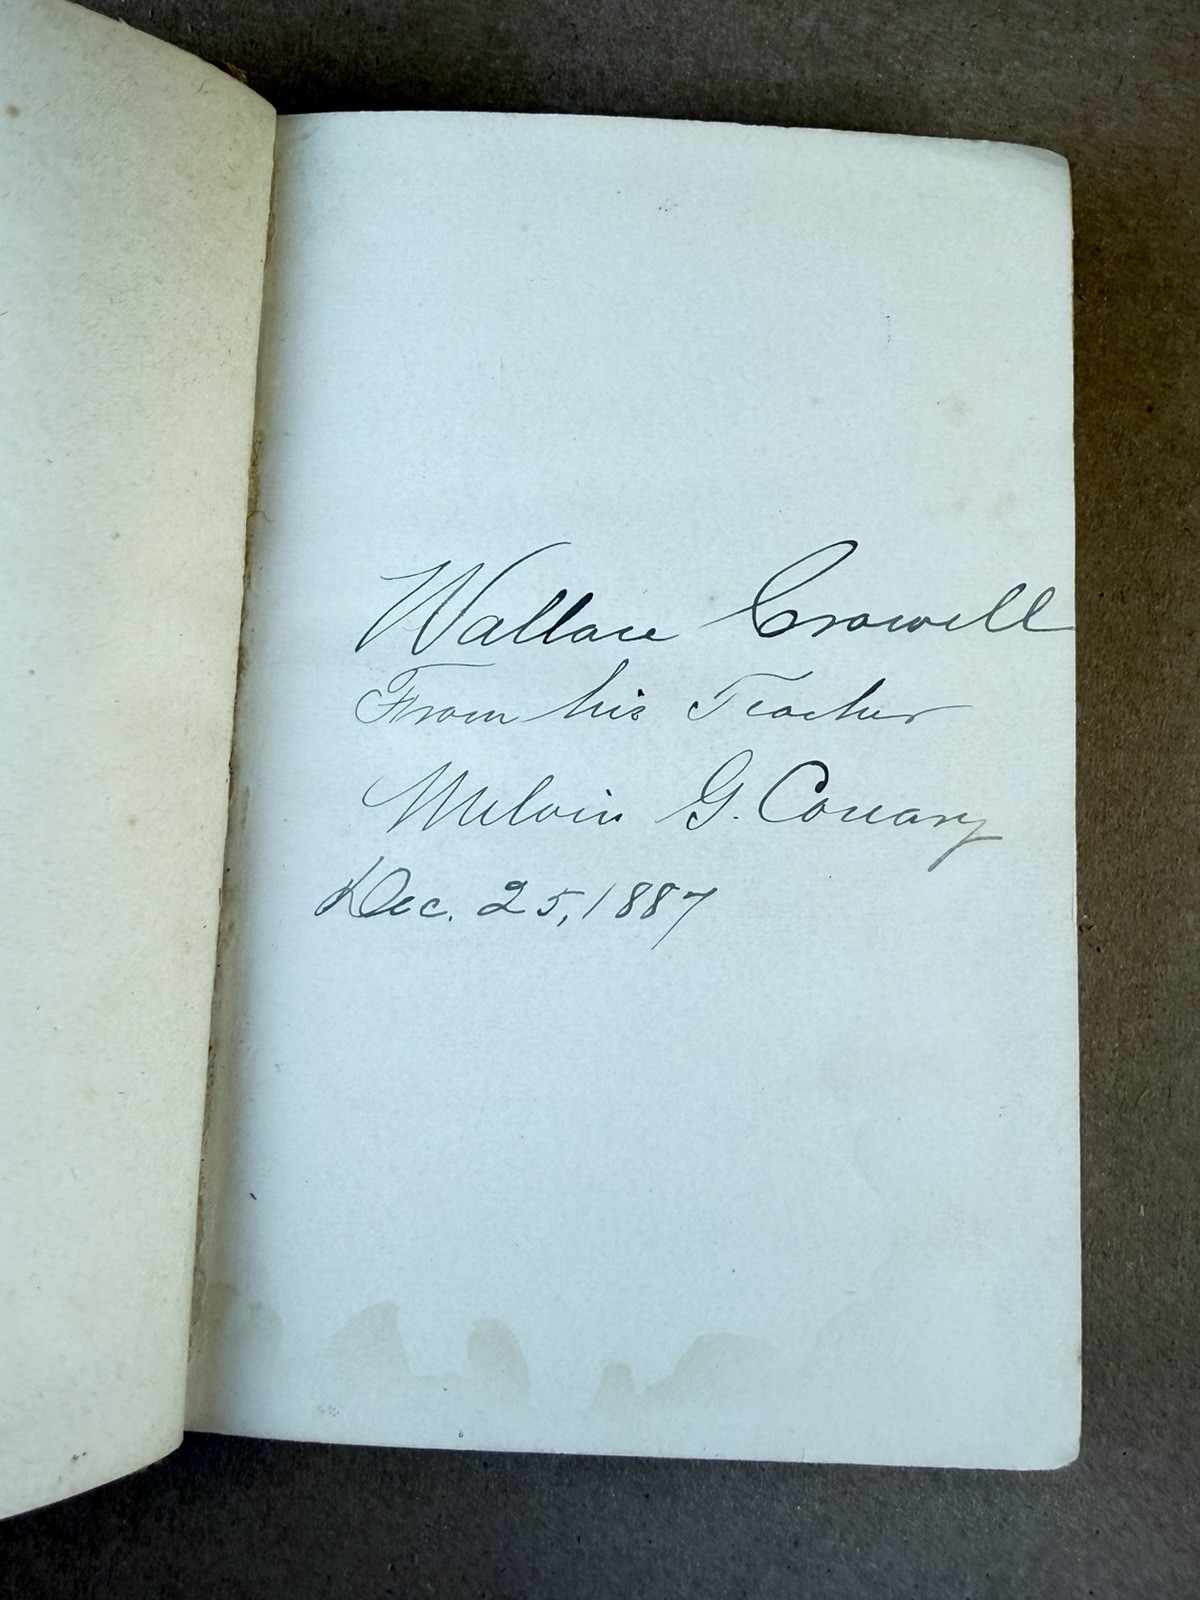 Wallace Crowell
From his Teacher
Melvin G. Conary
Dec. 25, 1887